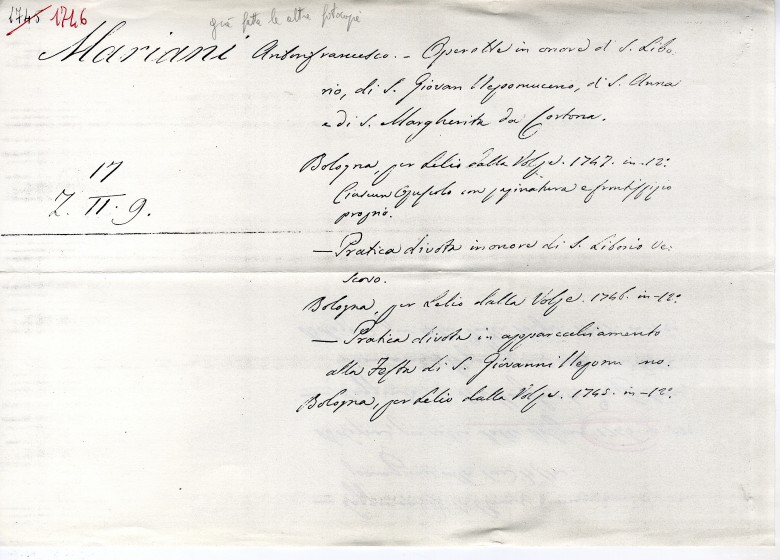 1745 1746
già fatte le altre fotocopie
Mariani Antonfrancesco. - Operette in onore di S. Libo-
rio, di S. Giovan Nepomuceno, di S. Anna
e di S. Margherita da Cortona.
17
Z. II. 9.
Bologna, per Lelio dalla Volpe. 1747. in-12°.
Ciascun Opuscolo con paginatura e frontispizio
proprio.
— Pratica divota in onore di S. Liborio Ve-
scovo.
Bologna, per Lelio dalla Volpe. 1746. in-12°.
— Pratica divota in apparecchiamento
alla Festa di S. Giovanni Nepomu no.
Bologna, per Lelio dalla Volpe. 1745. in-12°.